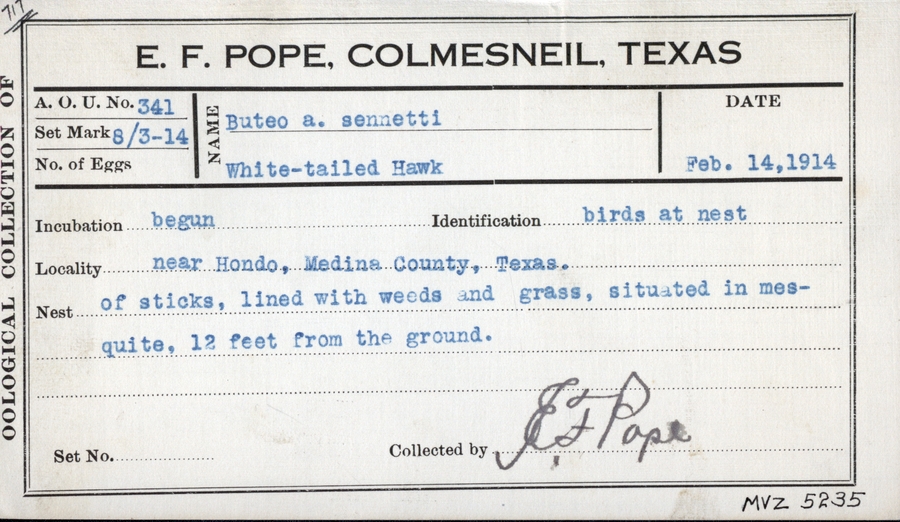 717
OOLOGICAL COLLECTION OF
E. F. POPE, COLMESNEIL, TEXAS
A. O. U. No. 341
Set Mark 8/3-14
No. of Eggs
NAME
Buteo a. sennetti
White-tailed Hawk
DATE
Feb. 14,1914
Incubation begun Identification birds at nest
Locality near Hondo, Medina County, Texas.
Nest of sticks, lined with weeds and grass, situated in mes-
quite, 12 feet from the ground.
Set No. Collected by E F Pope
MVZ 5235